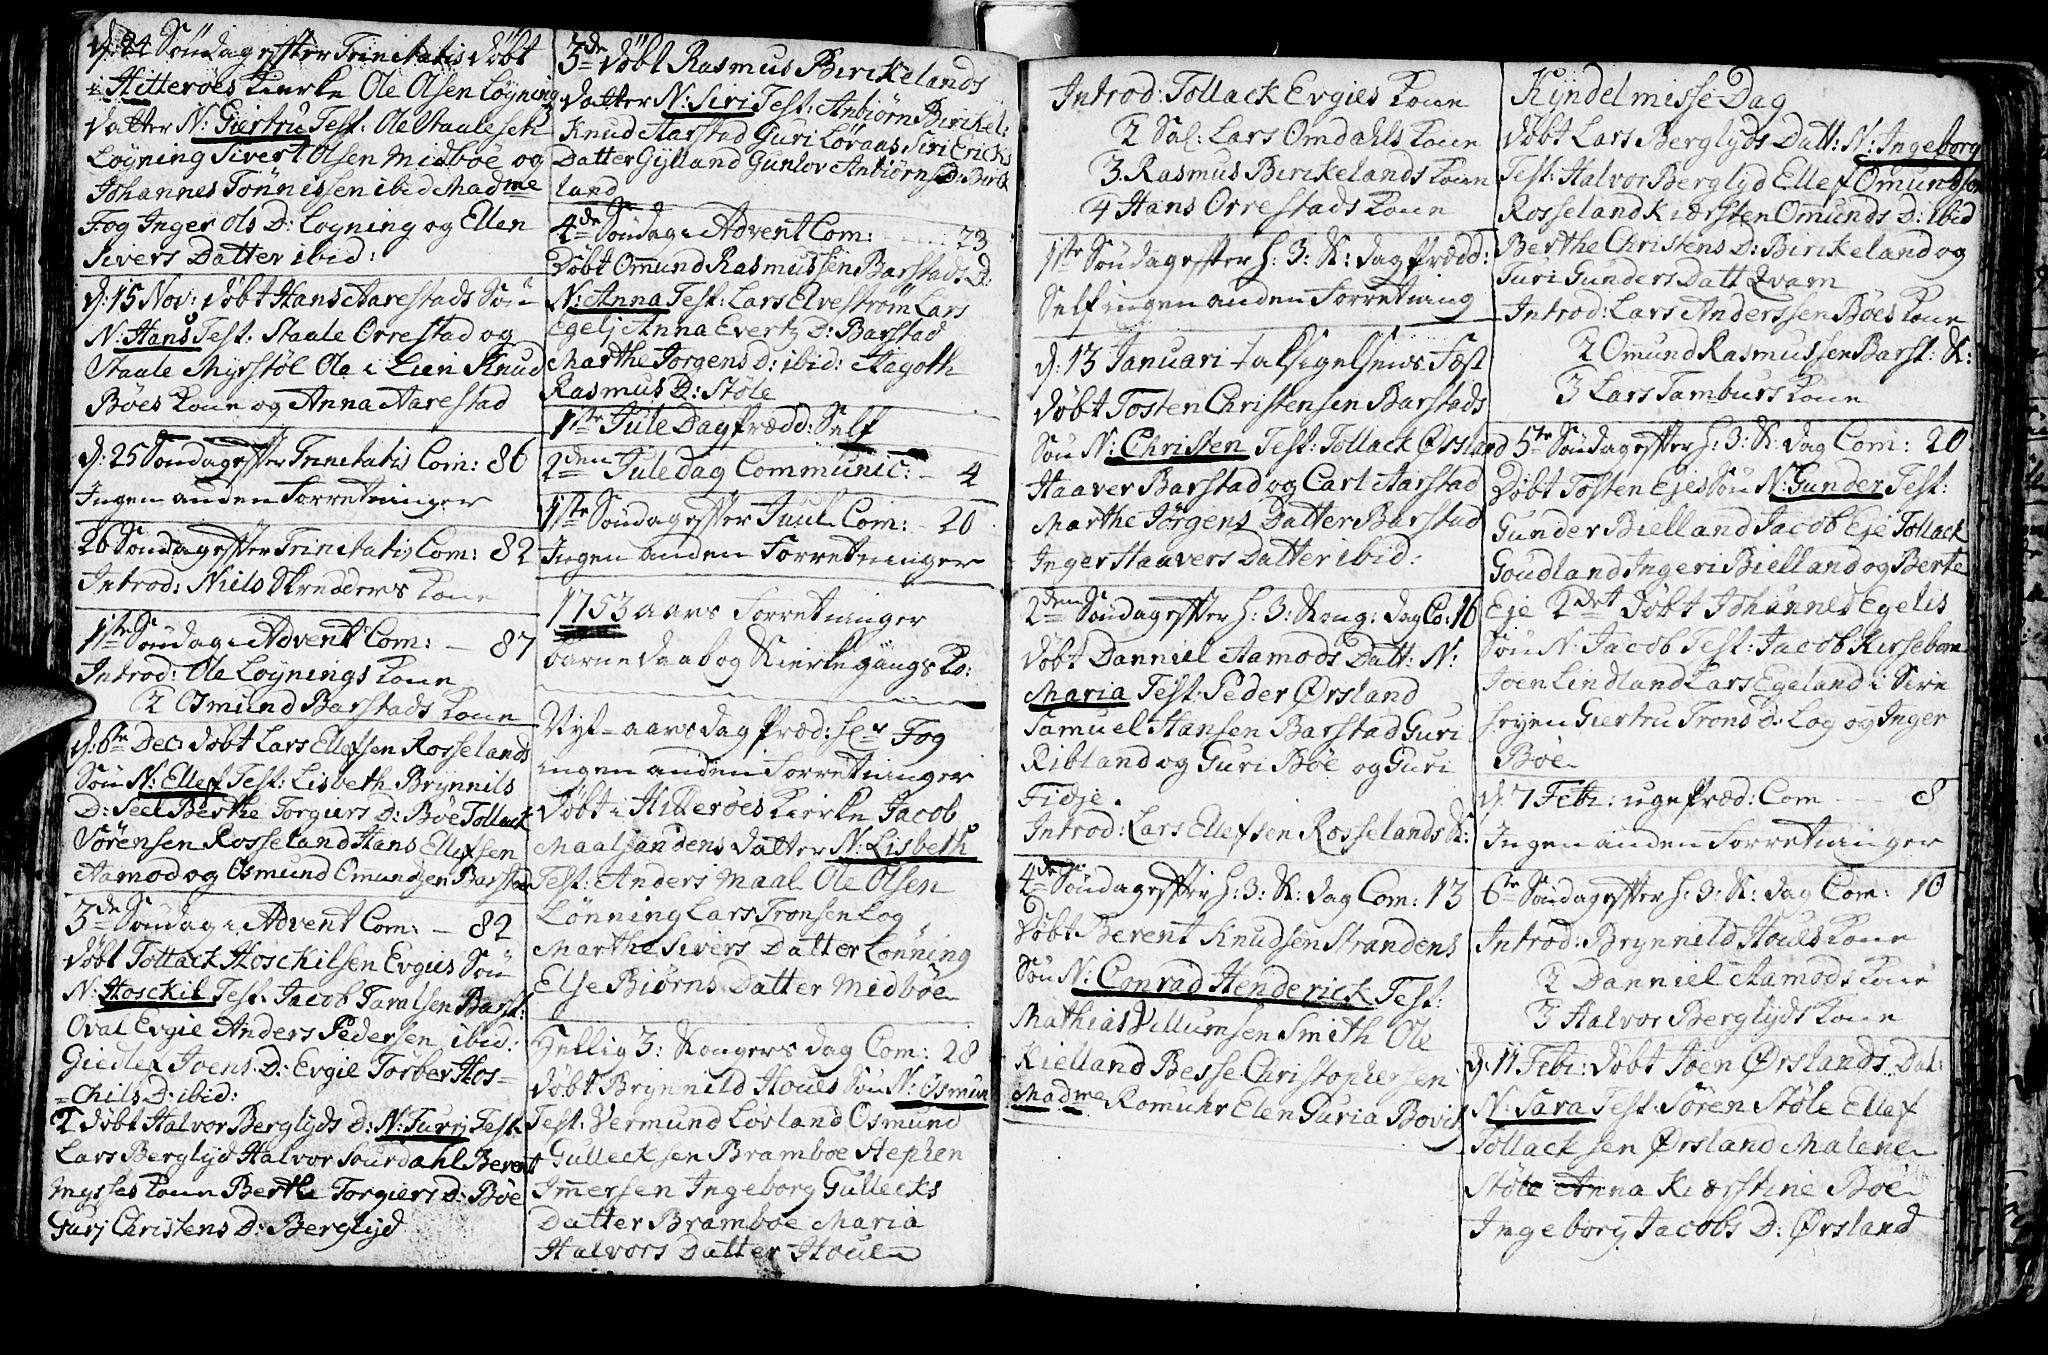 d: 24 Søndag efter Trinitatis døbt
i Hitteröes Kierke Ole Olsen Löyning
datter N: Giertru Test: Ole Staalesen
Löyning Sivert Olsen Midböe og
Johannes Tönnissen ibid Madme
Fog Inger Ols D: Loyning og Ellen
Sivers Datter ibid:
d: 15 Nov: döbt Hans Aarestads Sön
N: Hans Test: Staale Orrestad og
Staale Myrstöl Ole i Lien Knud
Böes Kone og Anna Aarestad
d: 25 Søndag efter Trinitatis Com: 86
Ingen anden Forretninger
26 Søndag efter Trinitatis Com: 82
Introd: Niels Skredders Kone
1ste Søndag i Advent Com: — 87
Introd: Ole Loynings Kone
2 Osmund Barstads Kone
d: 6te Dec: döbt Lars Ellefsen Rosselands
Sön N: Ellef Test: Lisbeth Brynnils
D: Seel Berthe Torgiers D: Böe Tollack
Sörensen Rosseland Hans Ellefsen
Aamod og Osmund Omundsen Barstad
3de Søndag i Advent Com: — 82
döbt Tollack Hoschilsen Evgies Sön
N: Hosckil Test: Jacob Taralsen Barst:
Oval Evgie Anders Pedersen ibid:
Giedlex Joens D: Evgie Torber Hos=
=chils D: ibid:
2 döbt Halvor Berglyds D: N: Turj Test:
Lars Berglyd Halvor Sourdahl Berent
Mysses Kone Berthe Torgiers D: Böe
Gurj Christens D: Berglyd
3de döbt Rasmus Birckelands
datter N: Siri Test: Anbiörn Birckel:
Knud Aarstad Guri Lövaas Siri Ericks
Datter Gylland Gunlov Anbiörns D: Birck
land
4de Søndag i Advent Com: 23
Döbt Omund Rasmussen Barstads D:
N: Anna Test: Lars Elveström Lars
Egelj Anna Evertz D: Barstad
Marthe Jorgens D: ibid: Aagoth
Rasmus D: Stöle
1ste Jule Dag prædd: Self
2den Jule dag Communic: — 4
1ste Søndag efter Juul Com: — 20
Ingen anden Forretninger
1753 aars Forretninger
barne daab og Kierkegangs Ko:
Nyt-aars dag præd: Fog
ingen anden Forretninger
Döbt i Hitteröes Kierke Jacob
Maalsandens datter N: Lisbeth
Test: Anders Maal Ole Olsen
Lönning Lars Tronsen Log
Marthe Sivers Datter Lonning
Else Biörns Datter Midböe
Hellig 3: Kongers dag Com: 28
döbt Brynnild Houes Sön N: Osmun
Test: Vermund Lovland Osmund
Gullecksen Bramboe Stephen
Immersen Ingeborg Gullecks
Datter Bramboe Maria
Halvors Datter Houe
Introd: Tollack Evgies Kone
2 Sal: Lars Omdahls Kone
3. Rasmus Birckelands Kone
4 Hans Orrestads Kone
1ste Søndag efter H: 3: K: dag prædd:
Self ingen anden Forretning
d: 13 Januari Taksigelsens Fest
döbt Tosten Christensen Barstads
Sön N: Christen Test: Tollack Ørsland
Haaver Barstad og Carl Aarstad
Marthe Jörgens Datter Barstad
Inger Haavers Datter ibid:
2den Søndag efter H: 3: Kong: dag Co: 16
döbt Danniel Aamods Datt: N:
Maria Test: Peder Ørsland
Samuel Hansen Barstad Guri
Ribland og Guri Böe og Guri
Fidje.
Introd: Lars Ellefsen Rosselands K:
4de Søndag efter H: 3: K: dag Com: 13
Döbt Berent Knudsen Strandens
Sön N: Conrad Henderick Test:
Mathias Villumsen Smith Ole
Kielland Besse Christophersen
Madme Romuhr Elen Guria Bovitz
Kyndelmisse Dag
döbt Lars Berglyds Datt: N: Ingeborg
Test: Halvor Berglyd Ellef Omundsen
Rosseland Kiersten Omunds D: ibid
Berthe Christens D: Birckeland og
Turi Gunders Datt Qvam
Introd: Lars Anderssen Böes Kone
2 Omund Rasmussen Barst: K:
3 Lars Tamburs Kone
5te Søndag efter H: 3: K: dag Com: 20
Döbt Tosten Ejes Sön N: Gunder Test:
Gunder Bielland Jacob Eje Tollack
Goudland Ingeri Bielland og Berte
Eje 2det döbt Johannes Egelis
Sön N: Jacob Test: Jacob Kirsebom
Joen Lindland Lars Egeland i Sire
Giertru Trons D: Log og Inger
Böe
d: 7 Feb: ugepræd: Com — 8
Ingen anden Forretninger
6te Søndag efter H: 3: K: dag Com: 10
Introd: Brynnild Houes Kone
2 Danniel Aamods Kone
3 Halvor Berglyds Kone
d: 11 Feb: döbt Joen Ørslands Dat:
N: Sara Test: Sören Stöle Ellef
Tollacksen Ørsland Malene
Stöle Anna Kierstine Böe
Ingeborg Jacobs D: Ørsland